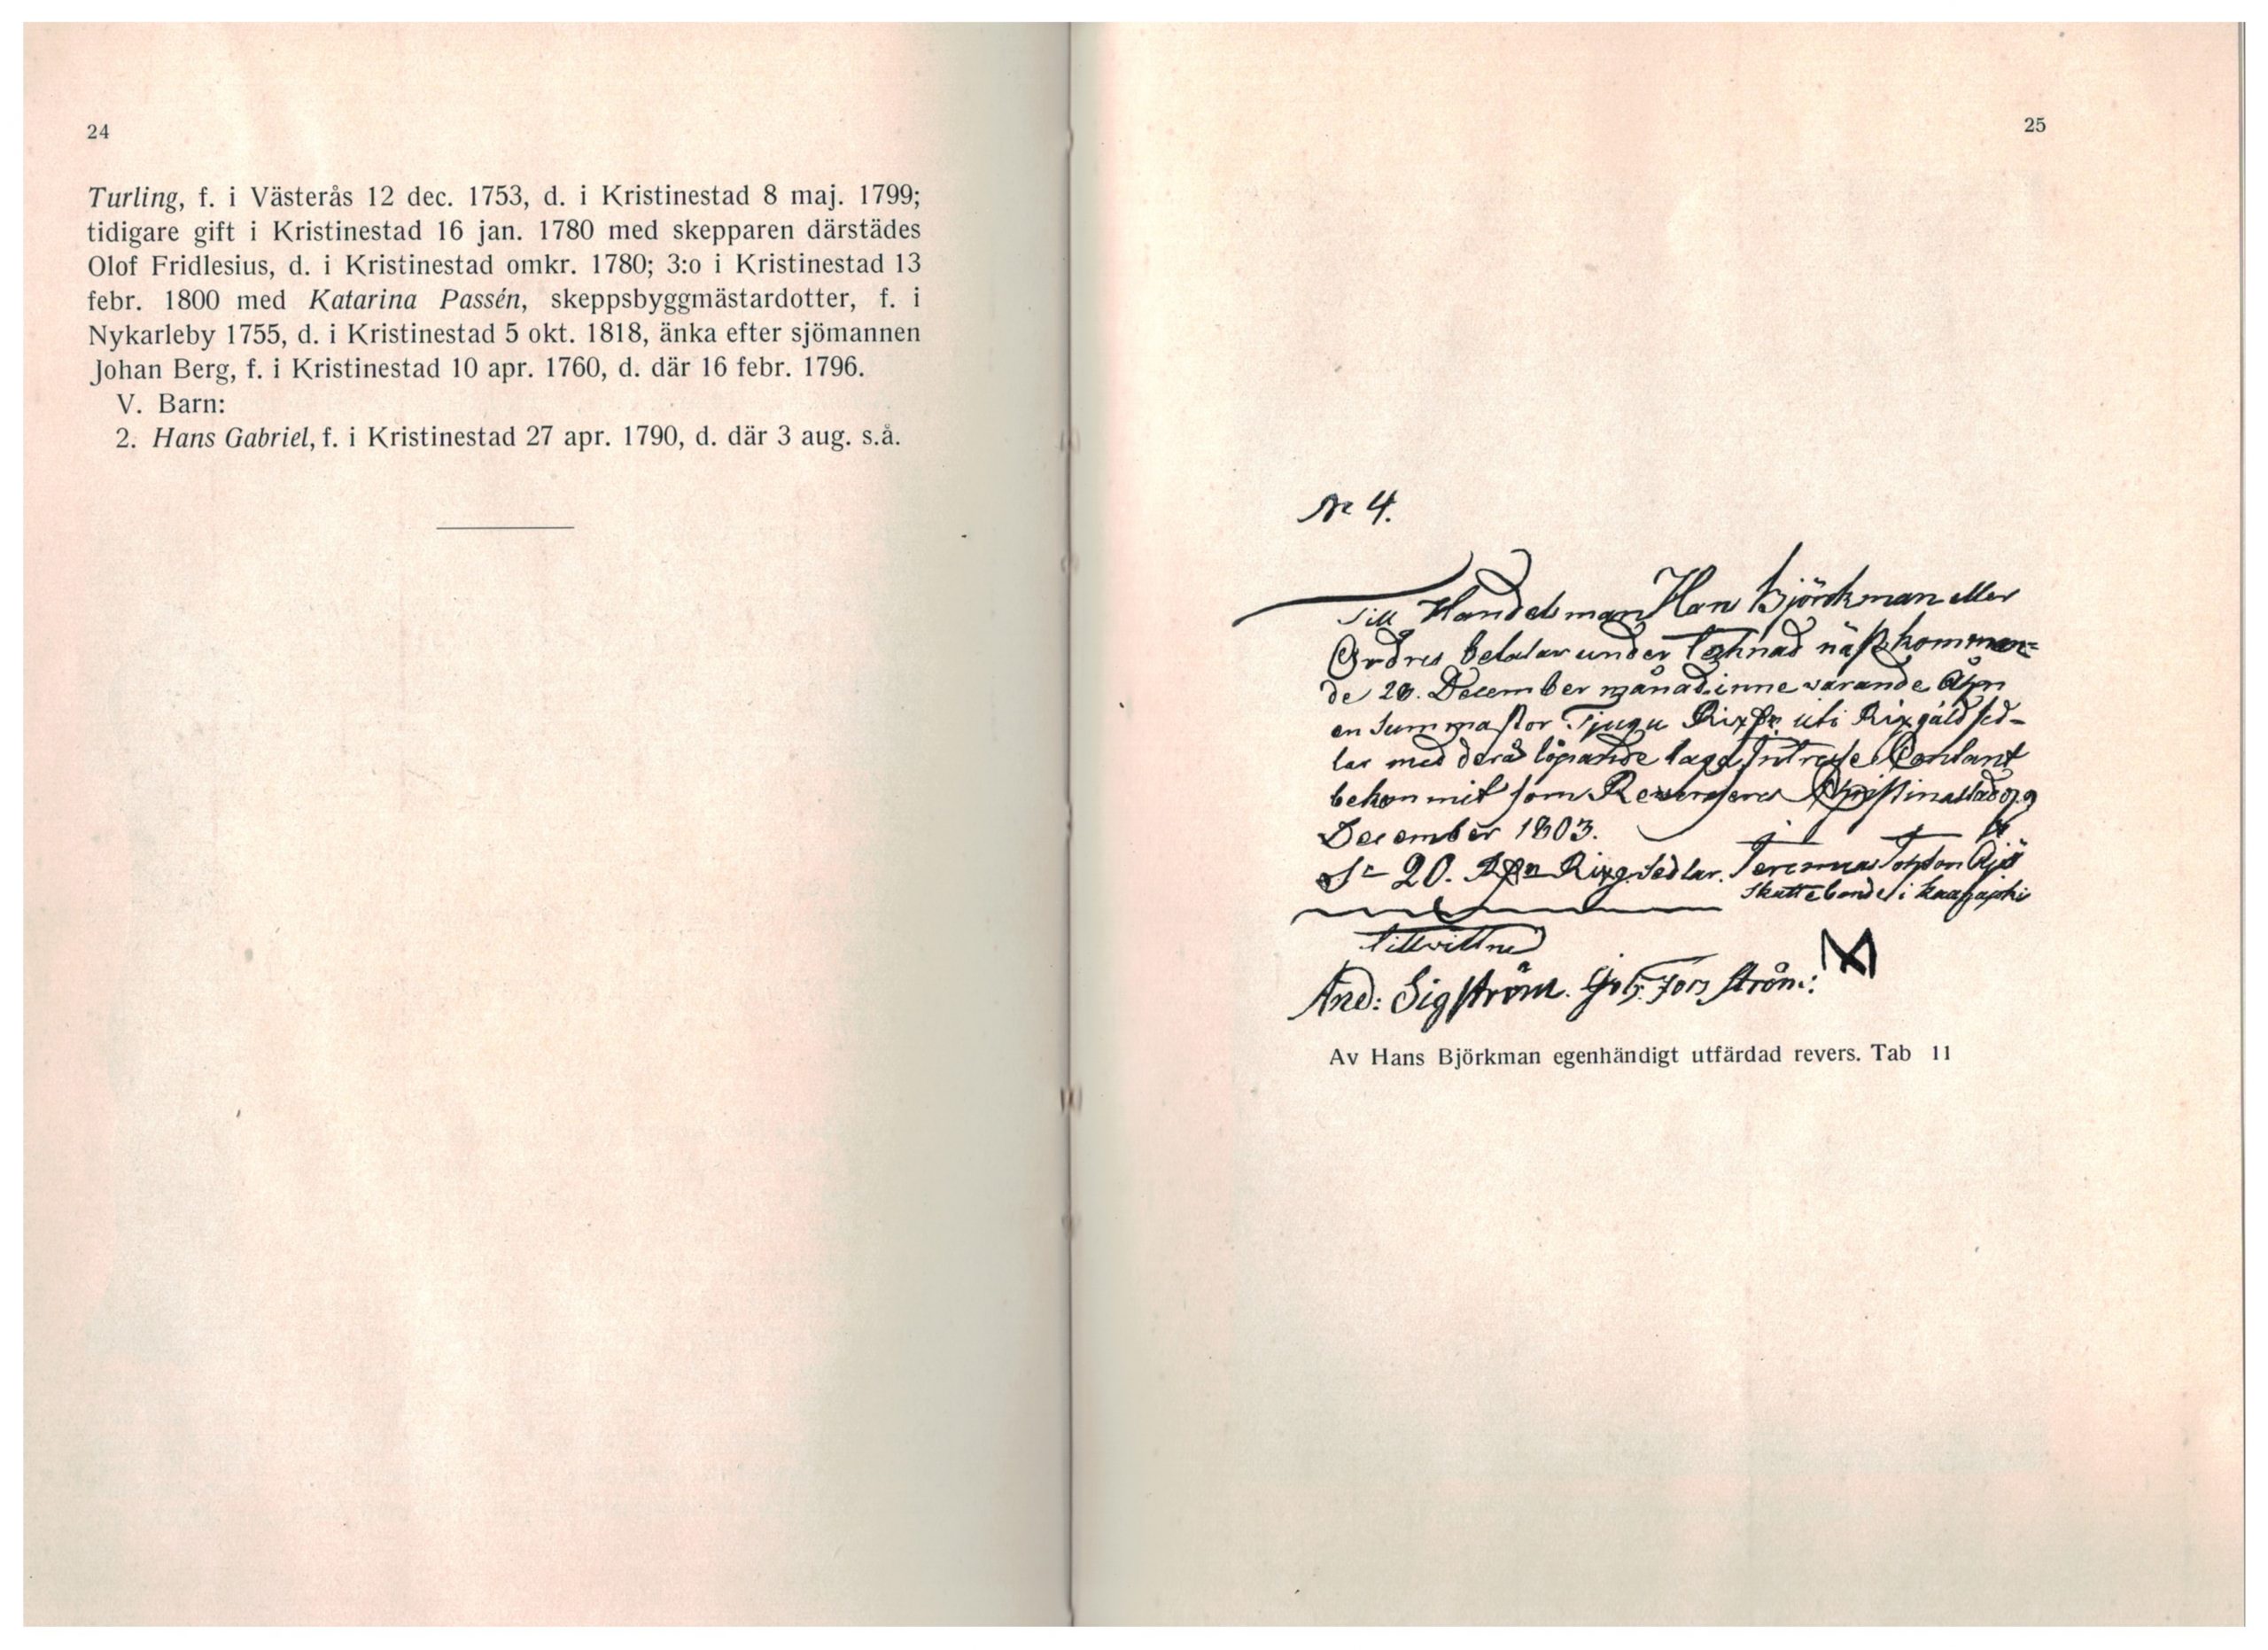 24
Turling, f. i Västerås 12 dec. 1753, d. i Kristinestad 8 maj. 1799;
tidigare gift i Kristinestad 16 jan. 1780 med skepparen därstädes
Olof Fridlesius, d. i Kristinestad omkr. 1780; 3:o i Kristinestad 13
febr. 1800 med Katarina Passén, skeppsbyggmästardotter, f. i
Nykarleby 1755, d. i Kristinestad 5 okt. 1818, änka efter sjömannen
Johan Berg, f. i Kristinestad 10 apr. 1760, d. där 16 febr. 1796.
V. Barn:
2. Hans Gabriel, f. i Kristinestad 27 apr. 1790, d. där 3 aug. s.å.
25
No 4.
Till Handelsman Hans Björkman eller
Ordres betalar under tecknad näst komman=
de 20. December månad inne warande
en Summa stor Tjugu uti Rixgäld sed-
lar med derå löpande laga Intresse Contant
bekommit som Reverseras Christinastad
December 1803.
20. Rixg. Sedlar.
Skattebonde i
Till vittne
And: Sigström. Forsström:
Av Hans Björkman egenhändigt utfärdad revers. Tab 11